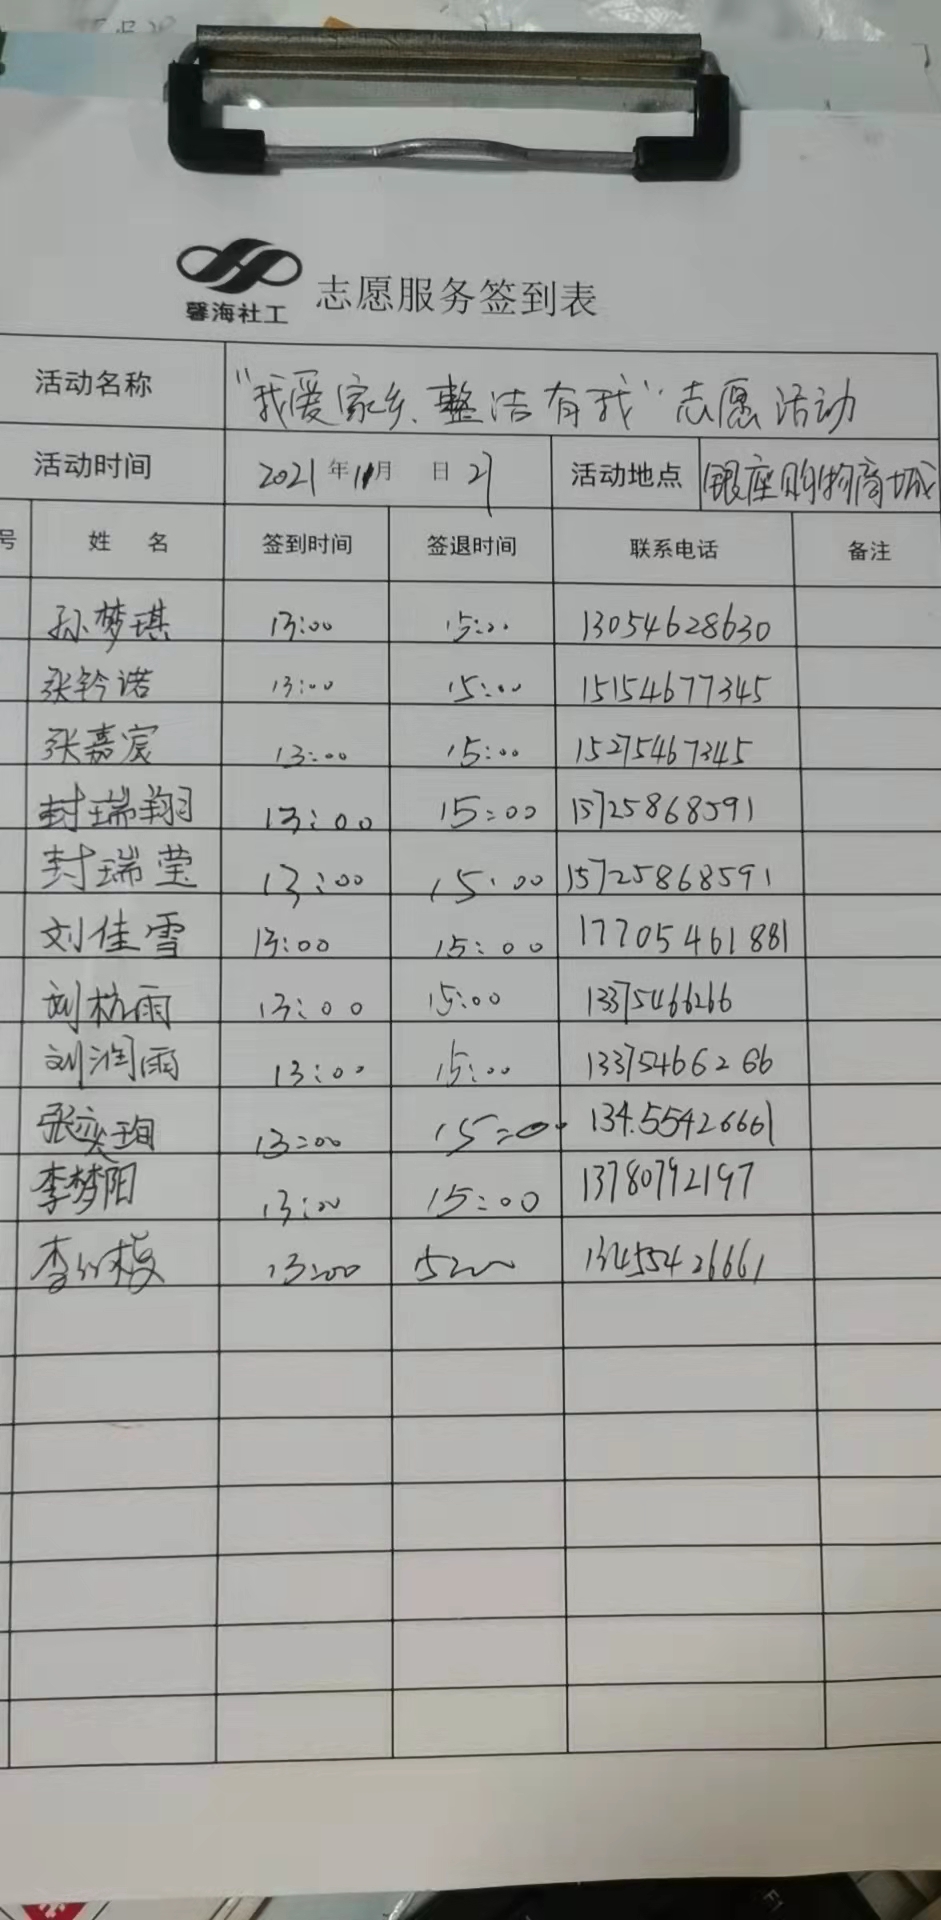 馨海社工
志愿服务签到表
活动名称 "我爱家乡、整洁有我"志愿活动
活动时间 2021年11月 日 21 活动地点 银座购物商城
号 姓 名 签到时间 签退时间 联系电话 备注
孙梦琪 13:00 15:00 13054628630
张钤诺 13:00 15:00 15154677345
张嘉宸 13:00 15:00 15275467345
封瑞翔 13:00 15:00 15725868591
封瑞莹 13:00 15:00 15725868591
刘佳雪 13:00 15:00 17705461881
刘杭雨 13:00 15:00 13375466266
刘润雨 13:00 15:00 13375466266
张奕珣 13:00 15:00 13455426661
李梦阳 13:00 15:00 13780792197
13:00 13455426661
F1